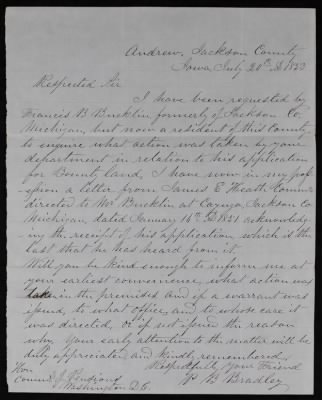 Andrew, Jackson County
Iowa July 20th 1853
Respected Sir
I have been requested by
Francis B Bucklin formerly of Jackson Co.
Michigan, but now a resident of this County
to enquire what action was taken by your
department in relation to his application
for County land, I have now in my pos
session a letter from James E Heath Comr
directed to Mr Bucklin at Cayuga, Jackson Co
Michigan, dated January 16th 1851 acknowledg
ing the receipt of his application, which is the
last that he has heard from it.
Will you be kind enough to inform me at
your earliest convenience, what action was
taken in the premises and if a warrant was
issued, to what office, and to whose care it
was directed, or if not issued the reason
why. Your early attention to the matter will be
duly appreciated and kindly remembered.
Respectfully Your Friend
P B Bradley
Hon
Washington D.C.